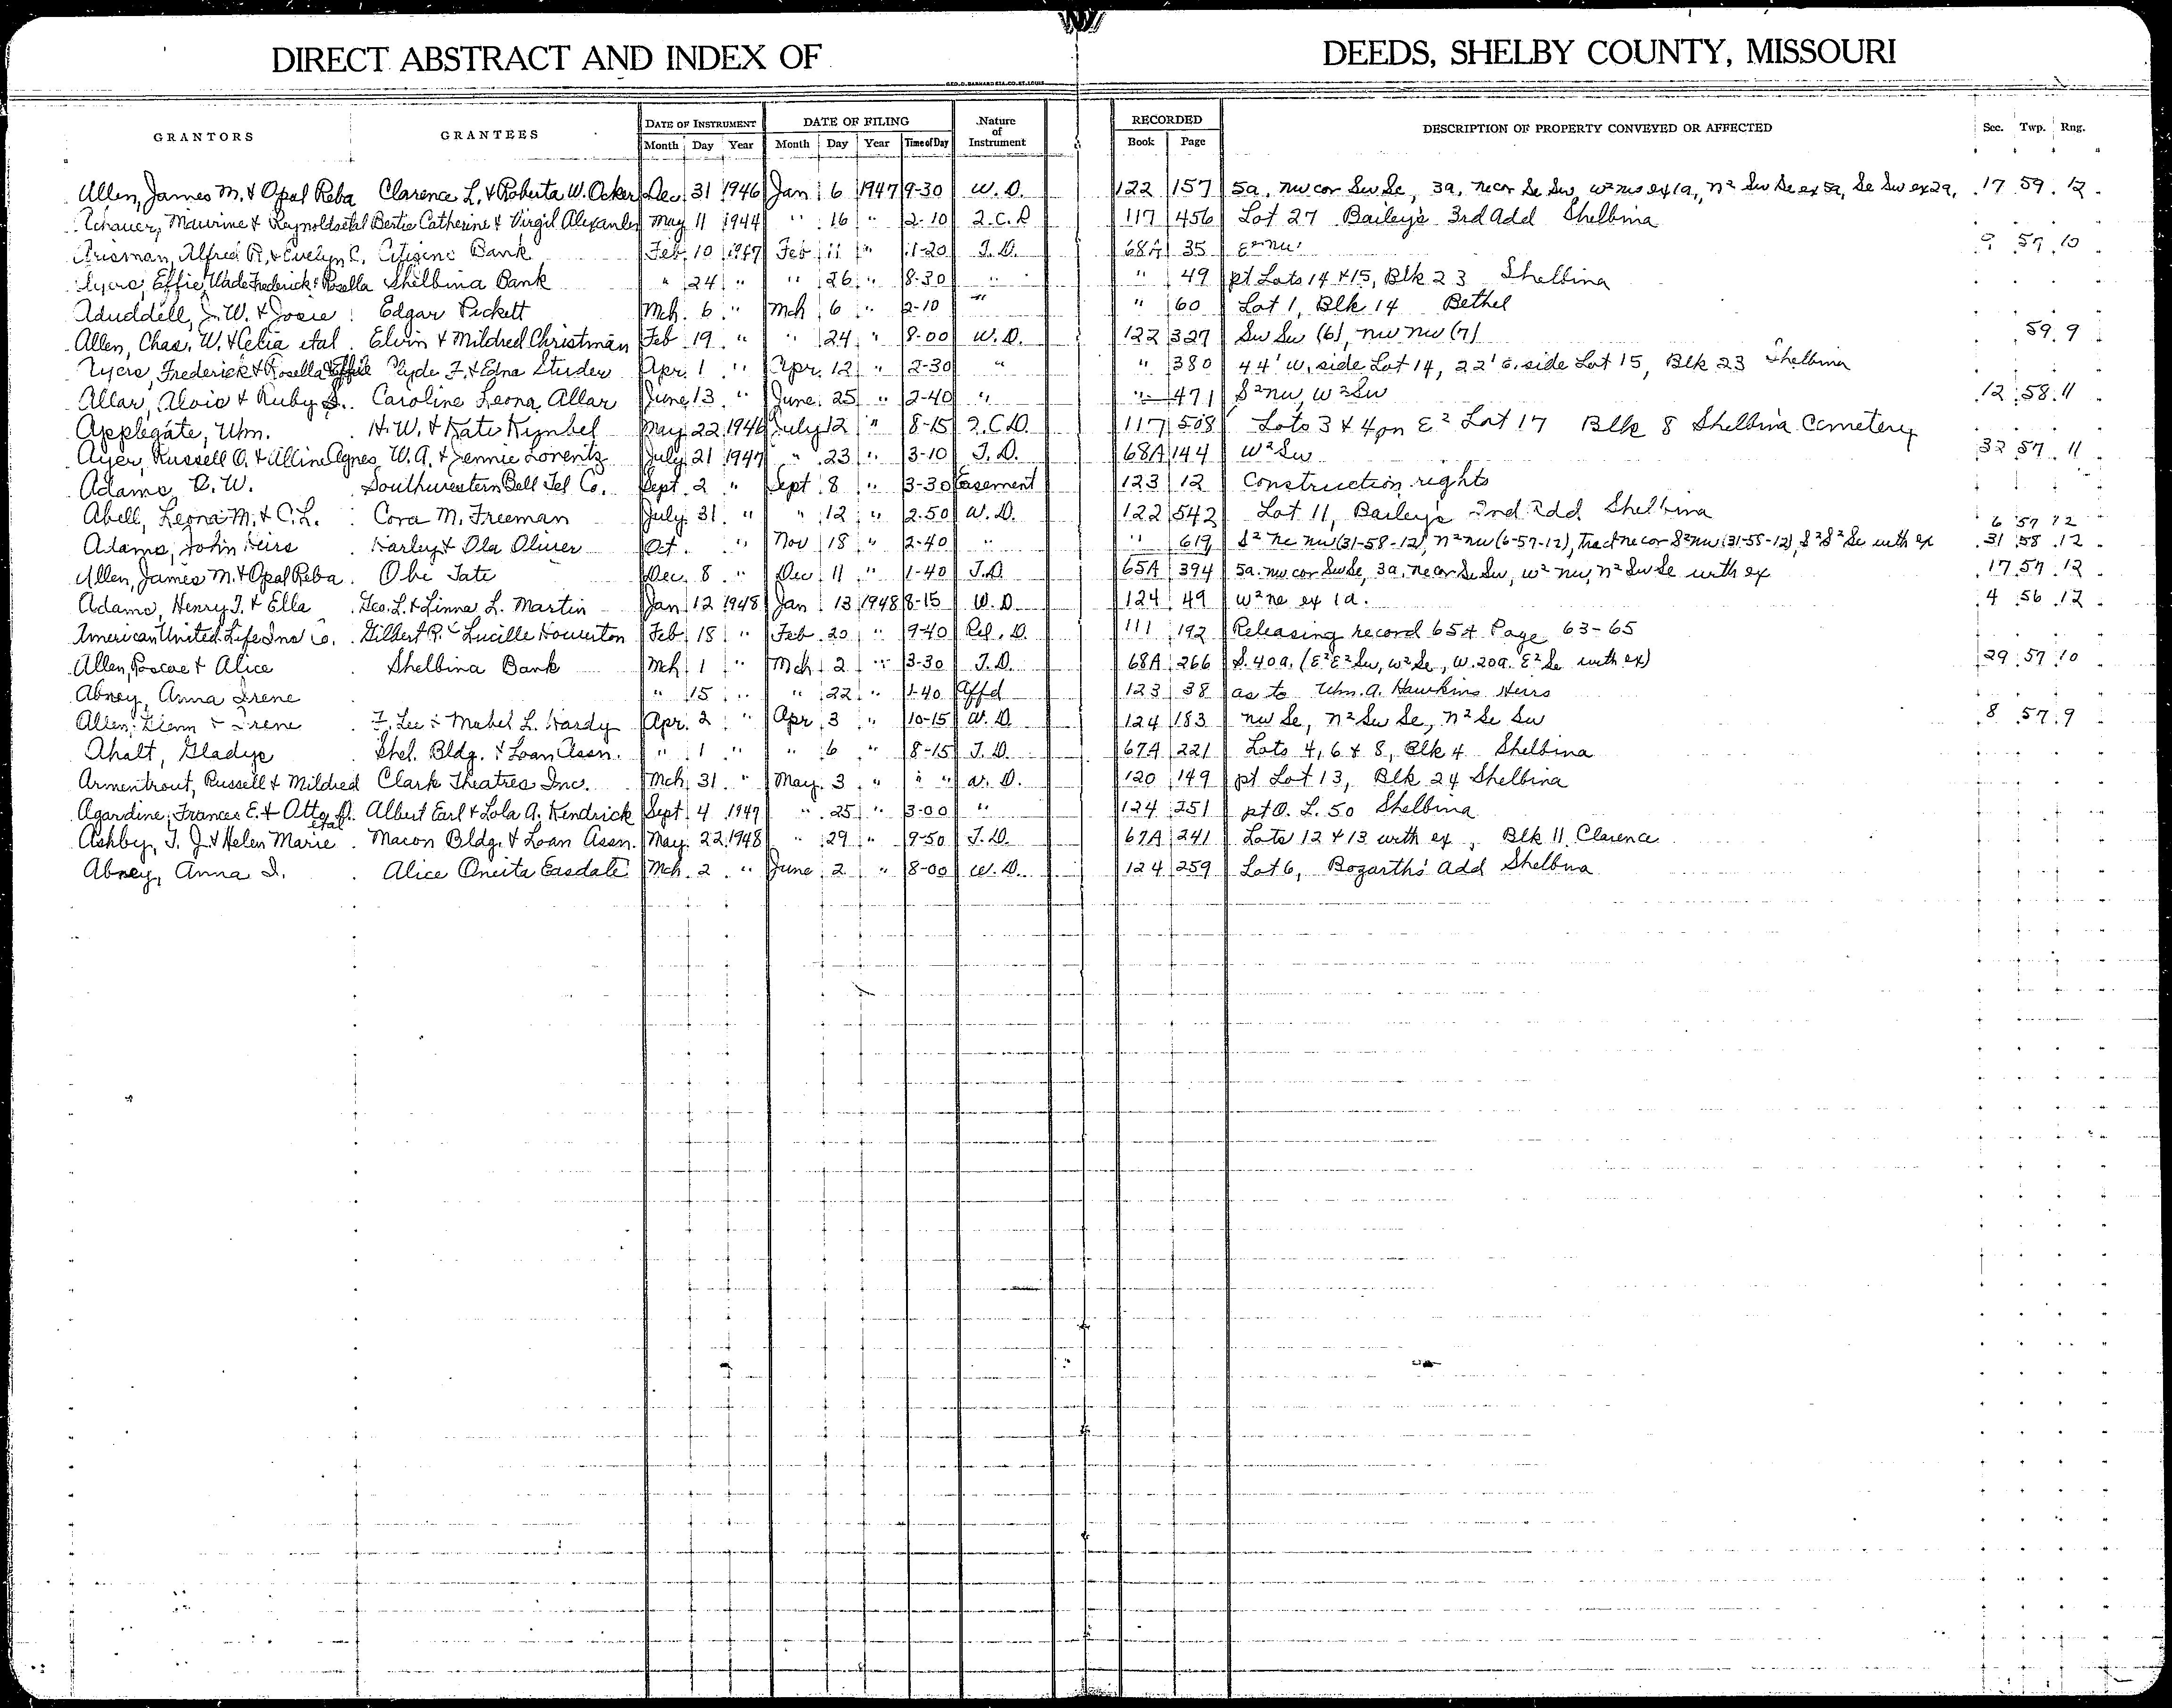 DIRECT ABSTRACT AND INDEX OF DEEDS, SHELBY COUNTY, MISSOURI
GEO. D. BARNARD STA. CO. ST. LOUIS
GRANTORS GRANTEES DATE OF INSTRUMENT DATE OF FILING Nature of Instrument RECORDED DESCRIPTION OF PROPERTY CONVEYED OR AFFECTED Sec. Twp. Rng.
Month Day Year Month Day Year Time of Day Book Page
Allen, James M. & Opal Reba Clarence L. & Roberta W. Acker Dec. 31 1946 Jan 6 1947 9-30 W. D. 122 157 5a. nw cor Sw Se, 3a, ne cor Se Sw, w² nw ex 1a, n² Sw Se ex 5a, Se Sw ex 2a, 17 59 12
Achauer, Maurine & Reynolds etal Bertie Catherine & Virgil Alexander May 11 1944 " 16 " 2-10 2.C.D 117 456 Lot 27 Bailey's 3rd Add Shelbina
Arisman, Alfred R. & Evelyn C. Citizens Bank Feb 10 1947 Feb 11 " 1-20 T.D. 68A 35 E² nw 9 57 10
Ayers, Effie, Wade Frederick & Rosella Shelbina Bank " 24 " " 26 " 8-30 " " 49 pt Lots 14 & 15, Blk 23 Shelbina
Aduddell, J. W. & Josie Edgar Pickett Mch. 6 " Mch 6 " 2-10 " " 60 Lot 1, Blk 14 Bethel
Allen, Chas. W. & Celia etal Elvin & Mildred Christman Feb 19 " " 24 " 8-00 W. D. 122 327 Sw Sw (6), nw nw (7) 59 9
Ayers, Frederick & Rosella Effie Clyde F. & Edna Studer Apr. 1 " Apr. 12 " 2-30 " " 380 44' w. side Lot 14, 22' E. side Lot 15, Blk 23 Shelbina
Allar, Alois & Ruby S. Caroline Leona Allar June 13 " June 25 " 2-40 " " 471 S² nw, w² Sw 12 58 11
Applegate, Wm. H. W. & Kate Kymbel May 22 1946 July 12 " 8-15 2.C.D. 117 508 Lots 3 & 4 on E² Lot 17 Blk 8 Shelbina Cemetery
Ayer, Russell O. & Alline Agnes W. A. & Jennie Lorentz July 21 1947 " 23 " 3-10 T.D. 68A 144 W² Sw 32 57 11
Adams, D. W. Southwestern Bell Tel Co. Sept. 2 " Sept 8 " 3-30 Easement 123 12 Construction rights
Abell, Leona M. & C. L. Cora M. Freeman July 31 " " 12 " 2-50 W. D. 122 542 Lot 11, Bailey's 2nd Add Shelbina
6 57 12
Adams, John Heirs Harley & Ola Oliver Oct. " Nov 18 " 2-40 " " 619 S² ne nw (31-58-12), n² nw (6-57-12), Tract ne cor S² nw (31-58-12), S² S² Se with ex 31 58 12
Allen, James M. & Opal Reba Obe Tate Dec. 8 " Dec 11 " 1-40 T.D. 65A 394 5a. nw cor Sw Se, 3a, ne cor Se Sw, w² nw, n² Sw Se with ex 17 59 12
Adams, Henry T. & Ella Geo. L. & Linna L. Martin Jan 12 1948 Jan 13 1948 8-15 W. D. 124 49 W² ne ex 1a. 4 56 12
American United Life Ins Co. Gilbert R. & Lucille Howerton Feb 18 " Feb 20 " 9-40 Rel. D. 111 192 Releasing record 65A Page 63-65
Allen, Roscoe & Alice Shelbina Bank Mch 1 " Mch 2 " 3-30 T.D. 68A 266 S. 40a. (E² E² Sw, w² Se, W. 20a. E² Se with ex) 29 57 10
Abney, Anna Irene " 15 " " 22 " 1-40 Affd 123 38 as to Wm. A. Hawkins Heirs
Allen, Glenn & Irene F. Lee & Mabel L. Hardy Apr. 2 " Apr 3 " 10-15 W. D 124 183 nw Se, n² Sw Se, n² Se Sw 8 57 9
Ahalt, Gladys Shel. Bldg. & Loan Assn. " 1 " " 6 " 8-15 T.D. 67A 221 Lots 4, 6 & 8, Blk 4 Shelbina
Armentrout, Russell & Mildred Clark Theatres Inc. Mch 31 " May 3 " " " W. D. 120 149 pt Lot 13, Blk 24 Shelbina
Agardine, Frances E. & Otto A. Albert Earl & Lola A. Kendrick Sept 4 1947 " 25 " 3-00 " 124 251 pt O. L. 50 Shelbina
Ashby, T. J. & Helen Marie etal Macon Bldg. & Loan Assn. May 22 1948 " 29 " 9-50 T.D. 67A 241 Lots 12 & 13 with ex, Blk 11 Clarence
Abney, Anna I. Alice Oneita Easdale Mch 2 " June 2 " 8-00 W. D. 124 259 Lot 6, Bozarth's Add Shelbina